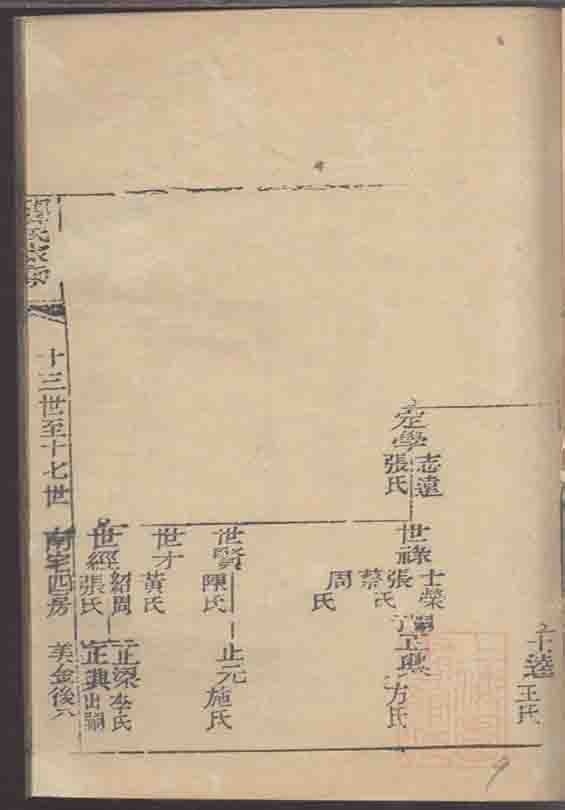 王氏
定學
志遠
張氏
世祿
士榮
張
蔡氏
周氏
嗣
正典
方氏
世賢
陳氏
正元
施氏
世才
黃氏
世經
紹周
張氏
正梁
李氏
正典
出嗣
十三世至十七世
南宅四房
美金後
9